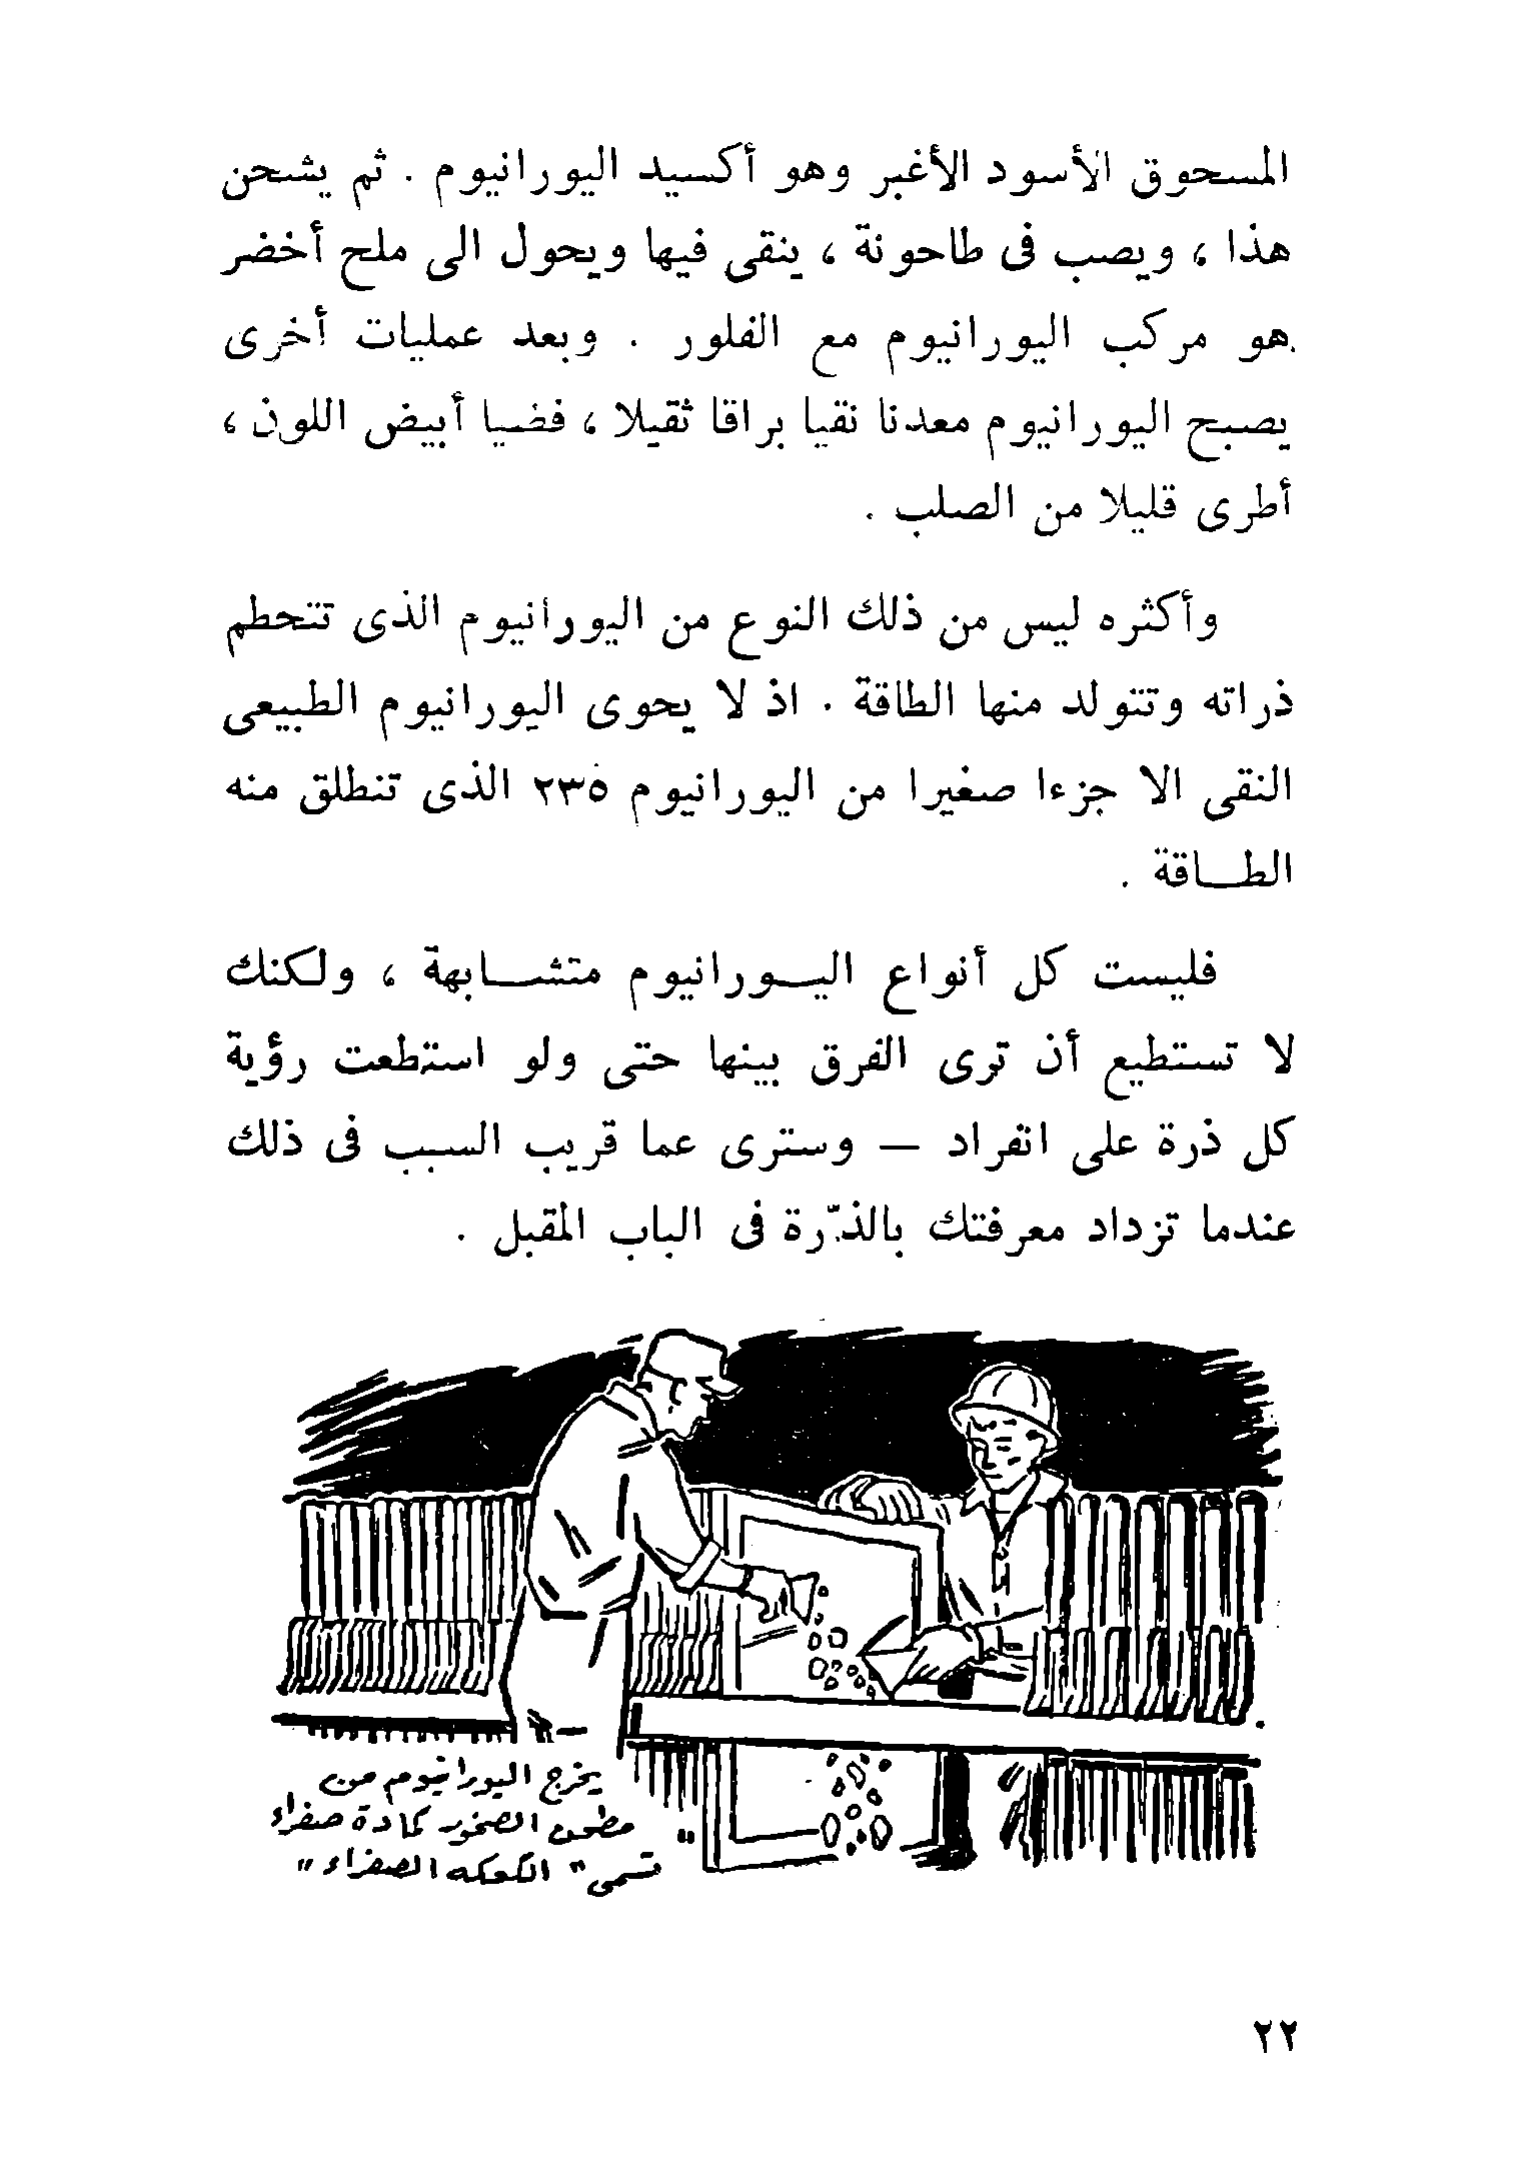 المسحوق الأسود الأغبر وهو أكسيد اليورانيوم . ثم يشحن
هذا ، ويصب فى طاحونة ، ينقى فيها ويحول الى ملح أخضر
هو مركب اليورانيوم مع الفلور . وبعد عمليات أخرى
يصبح اليورانيوم معدنا نقيا براقا ثقيلا ، فضيا أبيض اللون ،
أطرى قليلا من الصلب .
وأكثره ليس من ذلك النوع من اليورانيوم الذى تتحطم
ذراته وتتولد منها الطاقة . اذ لا يحوى اليورانيوم الطبيعى
النقى الا جزءا صغيرا من اليورانيوم ٢٣٥ الذى تنطلق منه
الطــاقة .
فليست كل أنواع اليــورانيوم متشــابهة ، ولكنك
لا تستطيع أن ترى الفرق بينها حتى ولو استطعت رؤية
كل ذرة على انفراد — وسترى عما قريب السبب فى ذلك
عندما تزداد معرفتك بالذّرة فى الباب المقبل .
يخرج اليورانيوم من
مطحن الصخور كمادة صفراء
تسمى " الكعكه الصفراء "
٢٢